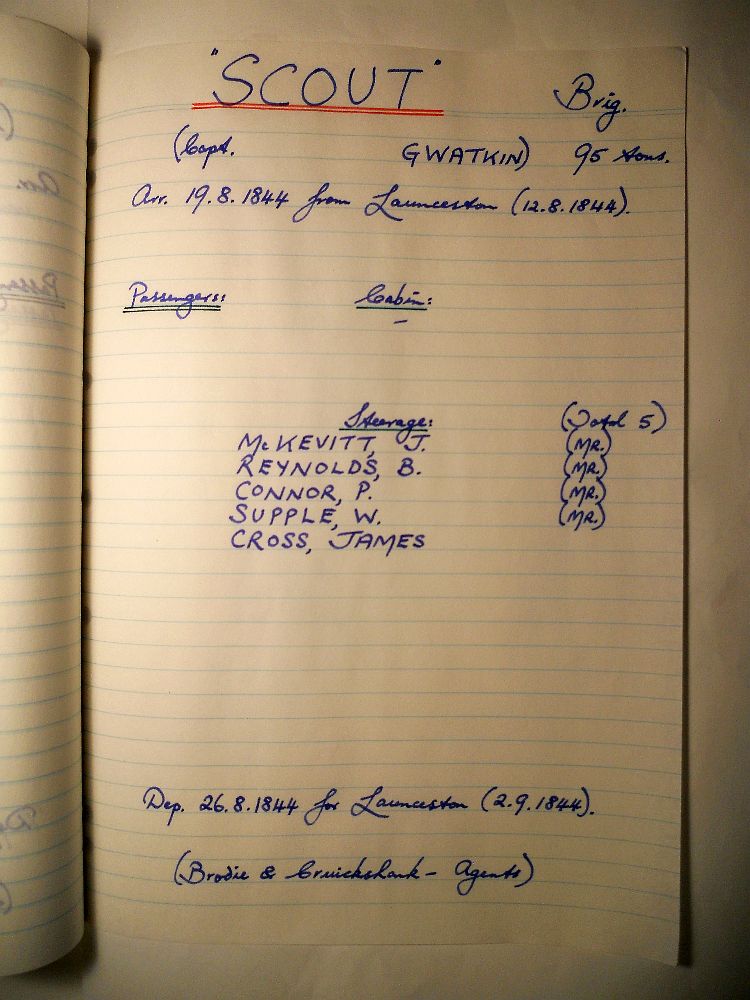 "SCOUT" Brig.
(Capt. GWATKIN) 95 tons.
Arr. 19.8.1844 from Launceston (12.8.1844).
Passengers: Cabin:
–
Steerage: (Total 5)
McKEVITT, J. (MR.)
REYNOLDS, B. (MR.)
CONNOR, P. (MR.)
SUPPLE, W. (MR.)
CROSS, JAMES
Dep. 26.8.1844 for Launceston (2.9.1844).
(Brodie & Cruickshank – Agents)